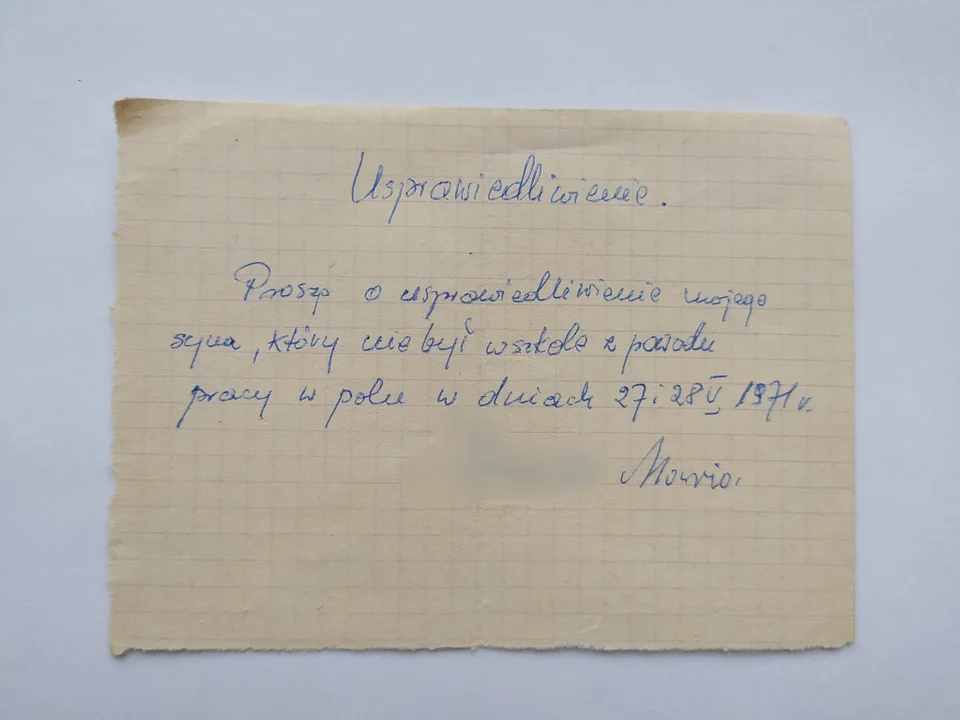 Usprawiedliwienie.
Proszę o usprawiedliwienie mojego
syna, który nie był w szkole z powodu
pracy w polu w dniach 27 i 28 V 1971 r.
Maria